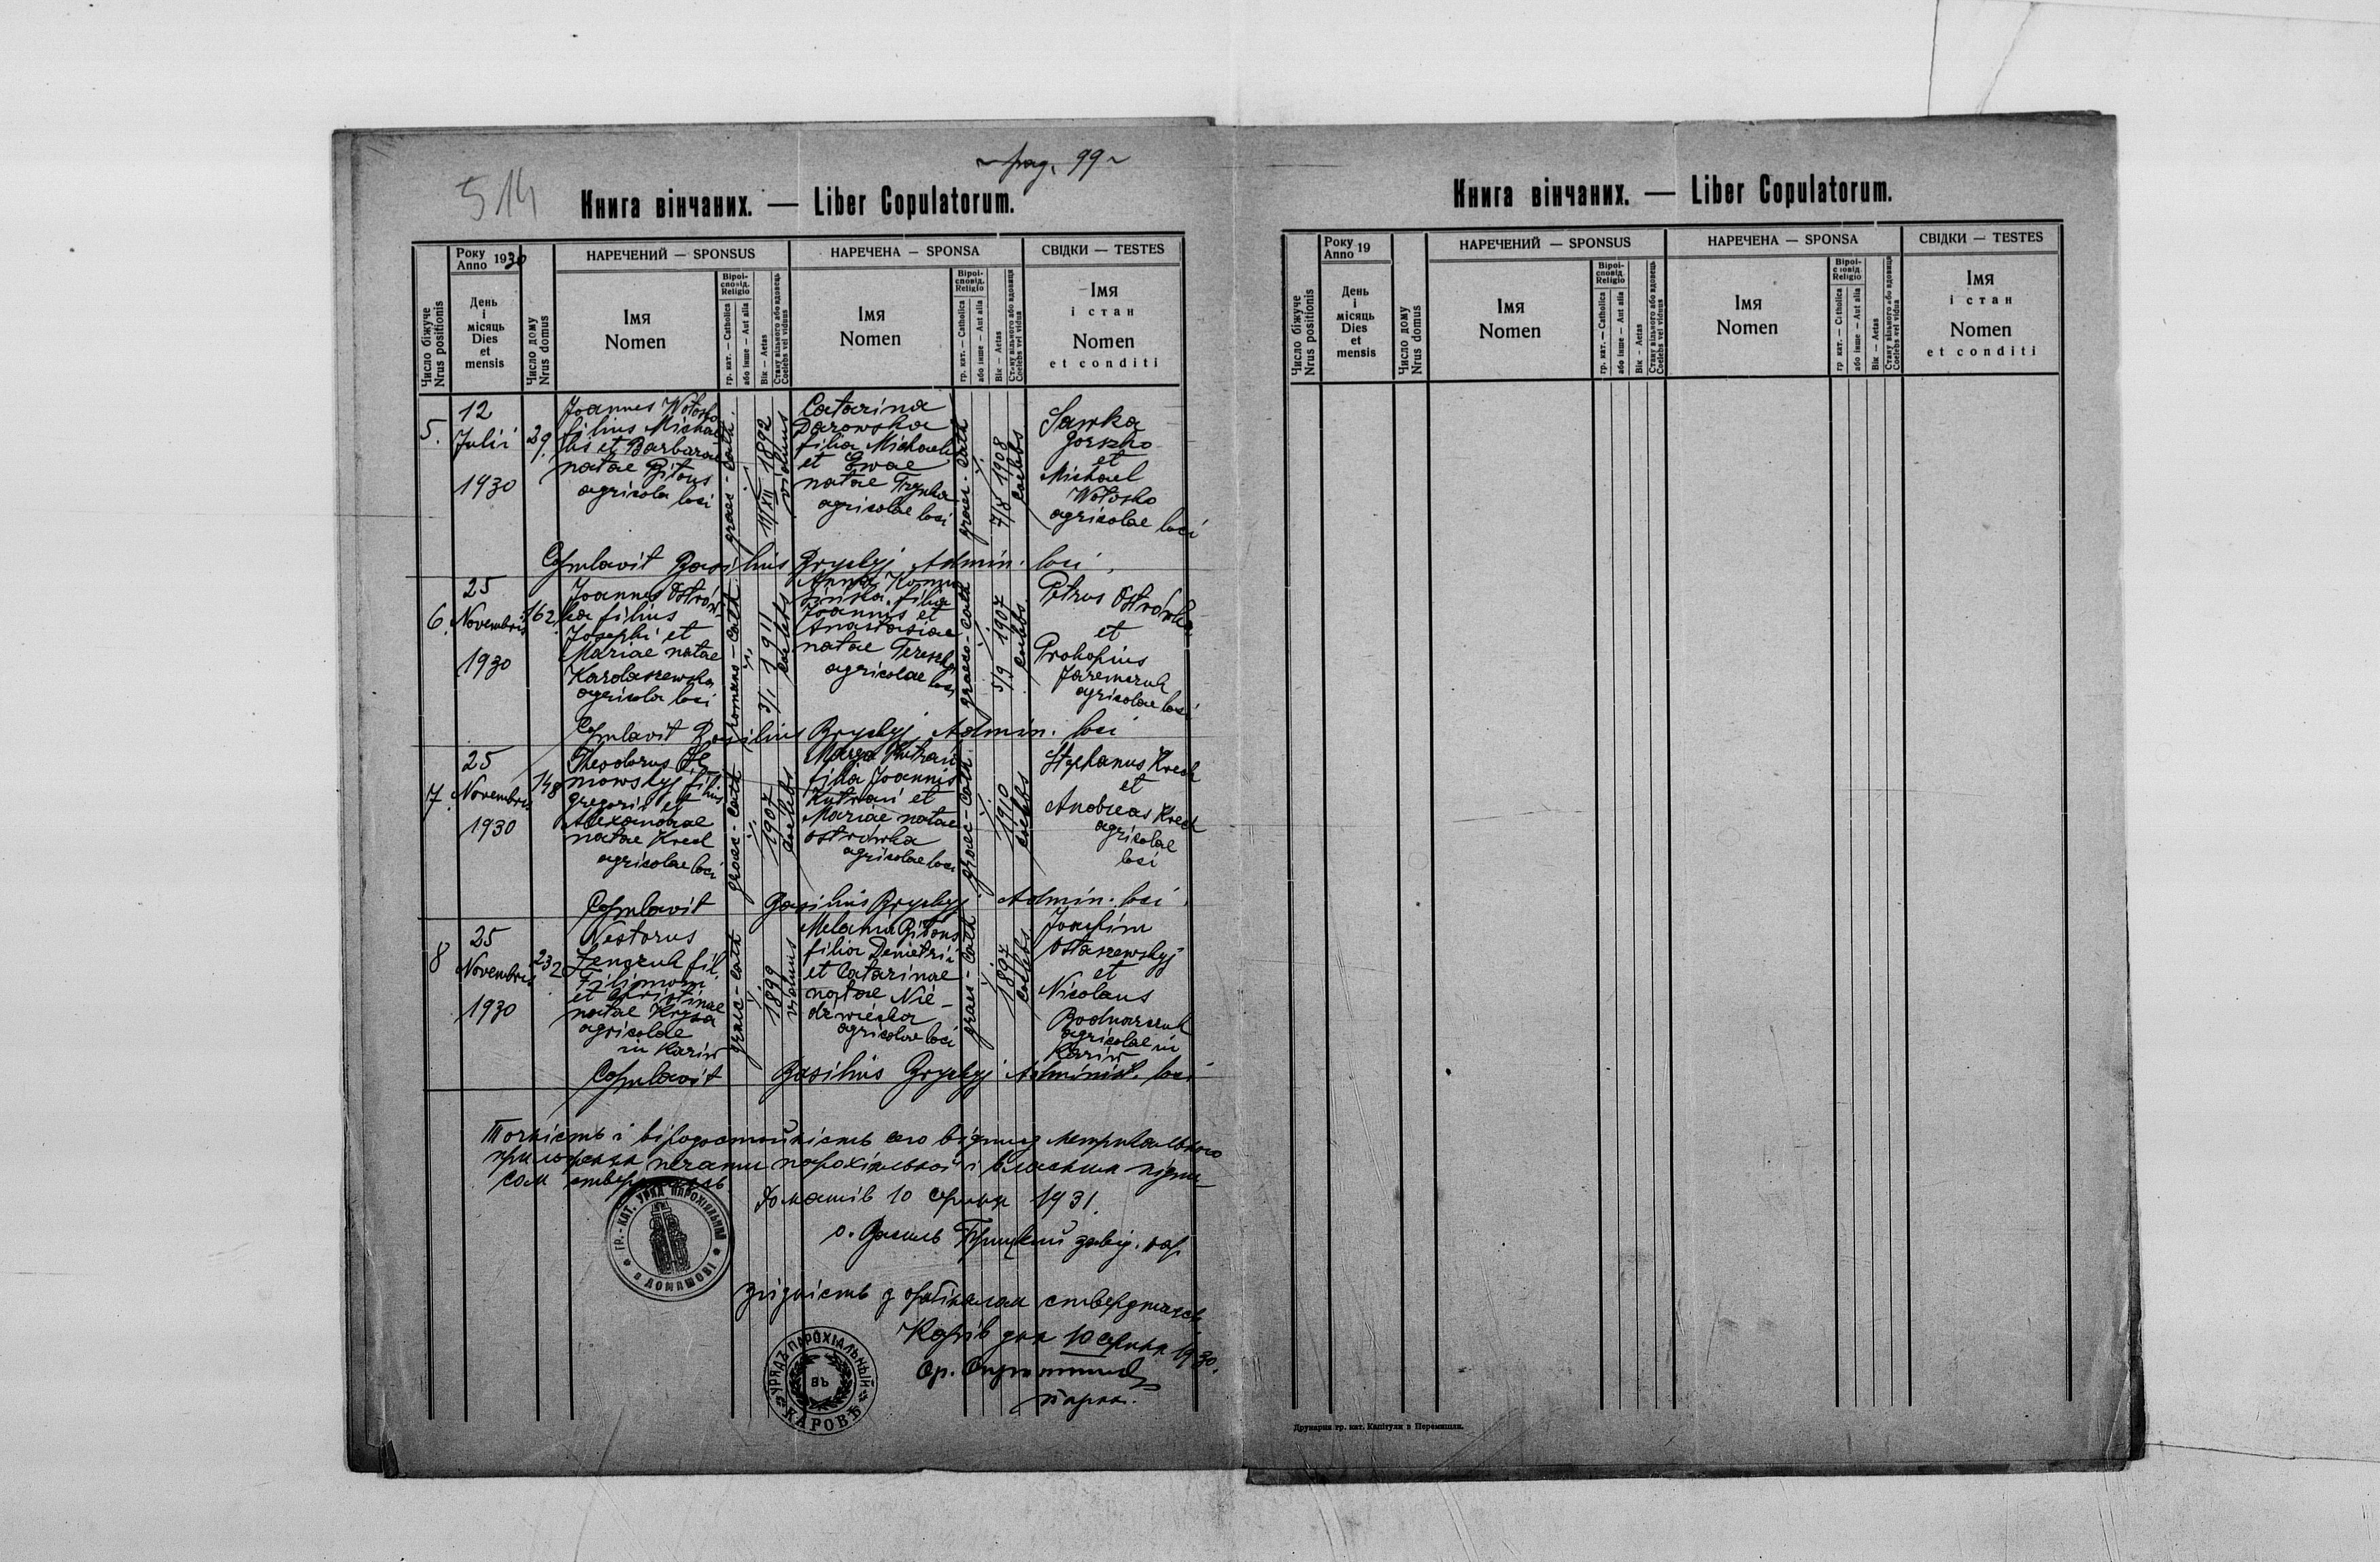 ~ pag. 99 ~
514
Книга вінчаних. — Liber Copulatorum.
Число біжуче
Nrus positionis
Року
Anno 1930
День
і
місяць
Dies
et
mensis
Число дому
Nrus domus
НАРЕЧЕНИЙ — SPONSUS
Імя
Nomen
Віроі-
сповід.
Religio
гр. кат. — Catholica
або інше — Aut alia
Вік — Aetas
Стану вільного або вдовець
Coelebs vel viduus
НАРЕЧЕНА — SPONSA
Імя
Nomen
Віроі-
сповід.
Religio
гр. кат. — Catholica
або інше — Aut alia
Вік — Aetas
Стану вільного або вдовиця
Coelebs vel vidua
СВІДКИ — TESTES
Імя
і стан
Nomen
et conditi
5.
12
Julii
1930
29.
Joannes Wołosko
filius Michae-
lis et Barbarae
natae Bitous
agricola loci
graec-cath.
11/XII 1892
viduus
Catarina
Darowska
filia Michaeli
et Ewae
natae
agricolae loci
graec-cath
7/8 1908
coelebs
Sawka
Gorszko
et
Michael
Wołosko
agricolae loci
Copulavit Basilius Bryckyj Admin. loci.
6.
25
Novembris
1930
162
Joannes Ostrów-
ka filius
Josephi et
Mariae natae
Kardaszewska
agricola loci
romano-cath.
3/1 1911
coelebs
Anna
filia
Joannis et
Anastasiae
natae
agricolae loci
graeco-cath
5/9 1907
coelebs
Petrus Ostrówka
et
Prokopius
Jaremczuk
agricolae loci
Copulavit Basilius Bryckyj Admin. loci
7.
25
Novembris
1930
148
Theodorus
filius
Gregorii et
Alexandrae
natae Krech
agricolae loci
graec-cath
1907
coelebs
Marya Kutrań
filia Joannis
Kutrani et
Mariae natae
Ostrówka
agricolae loci
graec-cath.
1910
coelebs
Stephanus Krech
et
Andreas Krech
agricolae
loci
Copulavit Basilius Bryckyj Admin. loci.
8
25
Novembris
1930
232
Nestorus
fil.
Filimoni
et Christinae
natae
agricolae
in Kariw
graec-cath
1899
viduus
Melania Bitous
filia Demetrii
et Catarinae
natae Nie-
dzwiecka
agricolae loci
graec-cath
1897
coelebs
Joachim
Ostaszewskyj
et
Nicolaus
Bodnarczuk
agricolae in
Kariw
Copulavit Basilius Bryckyj Administ. loci
Точність і вірогодність сего відпису метрикального
приложення печати парохіяльної і власним підпи-
сом стверджаю.
Домашів 10 серпня 1931.
о. Василь Брицкий завід. пар.
ГР.-КАТ. УРЯД ПАРОХІЯЛЬНИЙ
в ДОМАШОВІ
Згідність з оригіналом стверджаєсь.
Карів дня 10 серпня 1930.
парох.
УРЯДЪ ПАРОХІАЛЬНЫЙ
ВЪ
КАРОВѢ
Книга вінчаних. — Liber Copulatorum.
Число біжуче
Nrus positionis
Року
Anno 19
День
і
місяць
Dies
et
mensis
Число дому
Nrus domus
НАРЕЧЕНИЙ — SPONSUS
Імя
Nomen
Віроі-
сповід.
Religio
гр. кат. — Catholica
або інше — Aut alia
Вік — Aetas
Стану вільного або вдовець
Coelebs vel viduus
НАРЕЧЕНА — SPONSA
Імя
Nomen
Віроі-
сповід.
Religio
гр. кат. — Catholica
або інше — Aut alia
Вік — Aetas
Стану вільного або вдовиця
Coelebs vel vidua
СВІДКИ — TESTES
Імя
і стан
Nomen
et conditi
Друкарня гр. кат. Капітули в Перемишли.